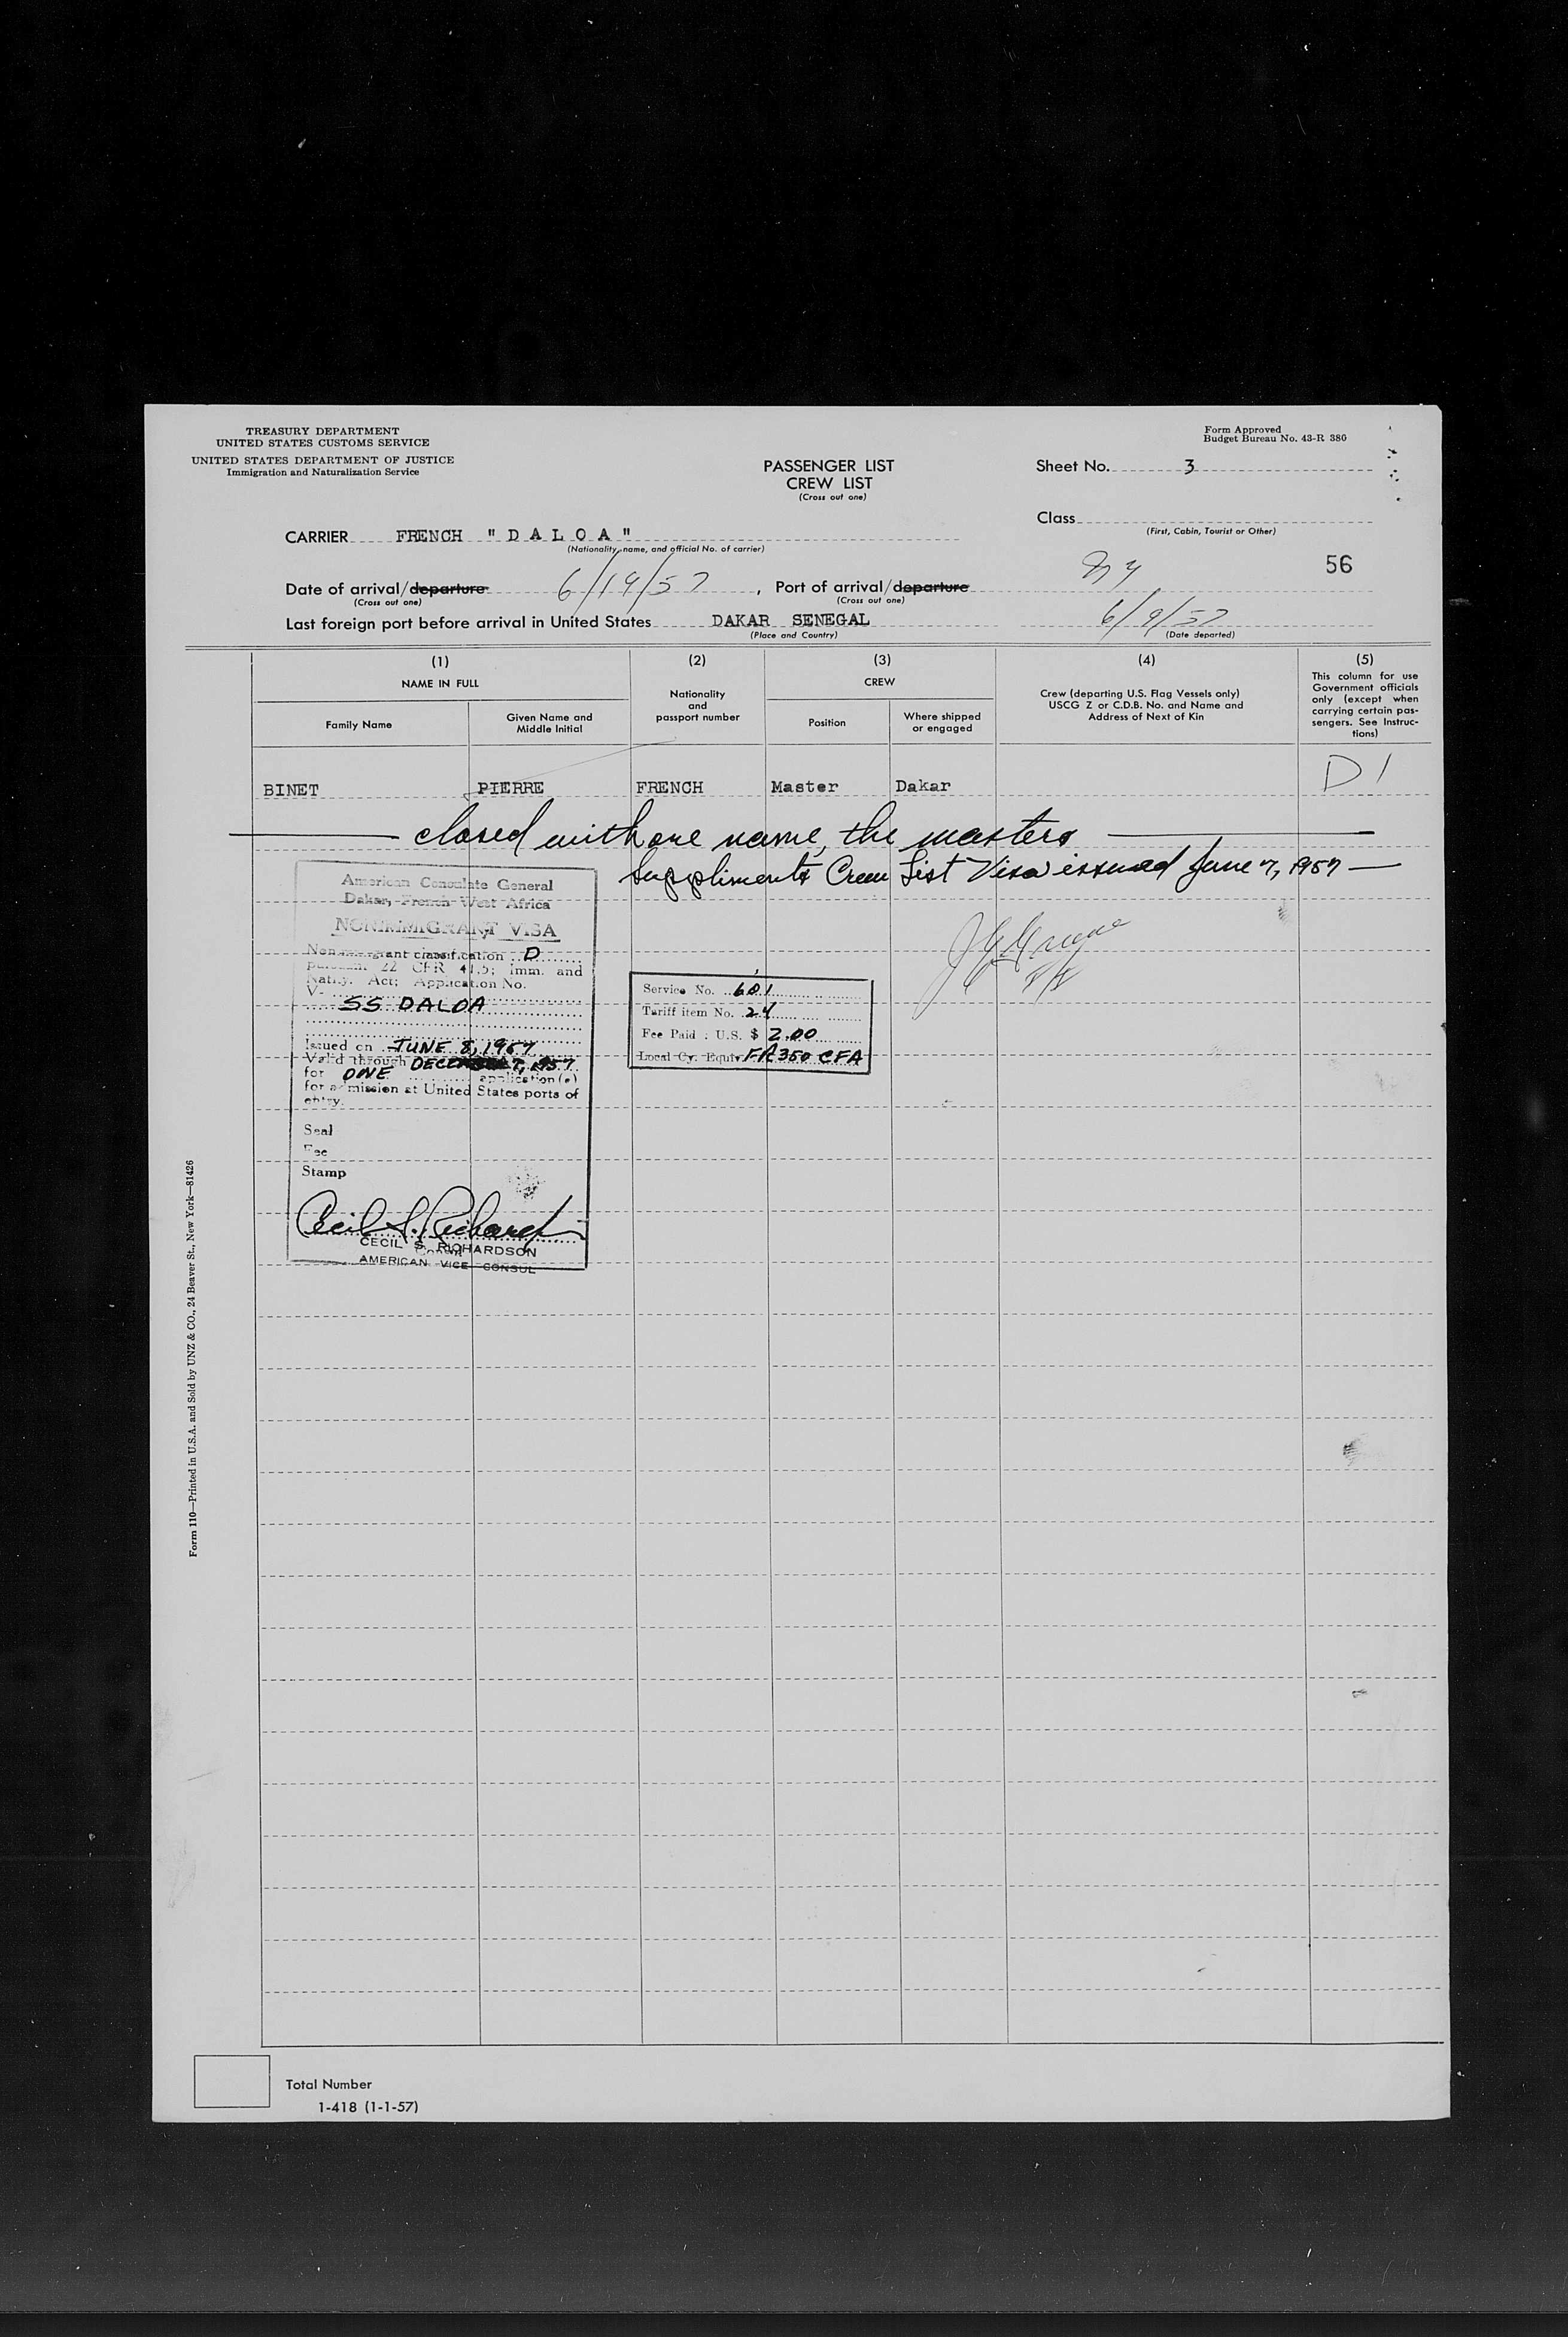 TREASURY DEPARTMENT
UNITED STATES CUSTOMS SERVICE
UNITED STATES DEPARTMENT OF JUSTICE
Immigration and Naturalization Service
Form Approved
Budget Bureau No. 43-R 380
PASSENGER LIST
CREW LIST
(Cross out one)
Sheet No. 3
Class
(First, Cabin, Tourist or Other)
CARRIER FRENCH "DALOA"
(Nationality, name, and official No. of carrier)
56
Date of arrival/departure 6/19/57, Port of arrival/departure NY
(Cross out one) (Cross out one)
Last foreign port before arrival in United States DAKAR SENEGAL 6/9/57
(Place and Country) (Date departed)
(1) (2) (3) (4) (5)
NAME IN FULL
Family Name
Given Name and
Middle Initial
Nationality
and
passport number
CREW
Position
Where shipped
or engaged
Crew (departing U.S. Flag Vessels only)
USCG Z or C.D.B. No. and Name and
Address of Next of Kin
This column for use
Government officials
only (except when
carrying certain pas-
sengers. See Instruc-
tions)
BINET PIERRE FRENCH Master Dakar D1
closed with one name, the masters
Suppliments Crew List Visa issued June 7, 1957
American Consulate General
Dakar, French West Africa
NONIMMIGRANT VISA
Nonimmigrant classification D
pursuant 22 CFR 41.5; Imm. and
Natly. Act; Application No.
V-
SS DALOA
Issued on JUNE 8, 1957
Valid through DECEMBER 7, 1957
for ONE application(s)
for admission at United States ports of
entry.
Seal
Fee
Stamp
Cecil S. Richardson
CECIL S. RICHARDSON
AMERICAN VICE CONSUL
Service No. 601
Tariff item No. 24
Fee Paid : U.S. $ 2.00
Local Cy. Equiv. FR 350 CFA
Form 110—Printed in U.S.A. and Sold by UNZ & CO., 24 Beaver St., New York—81426
Total Number
1-418 (1-1-57)